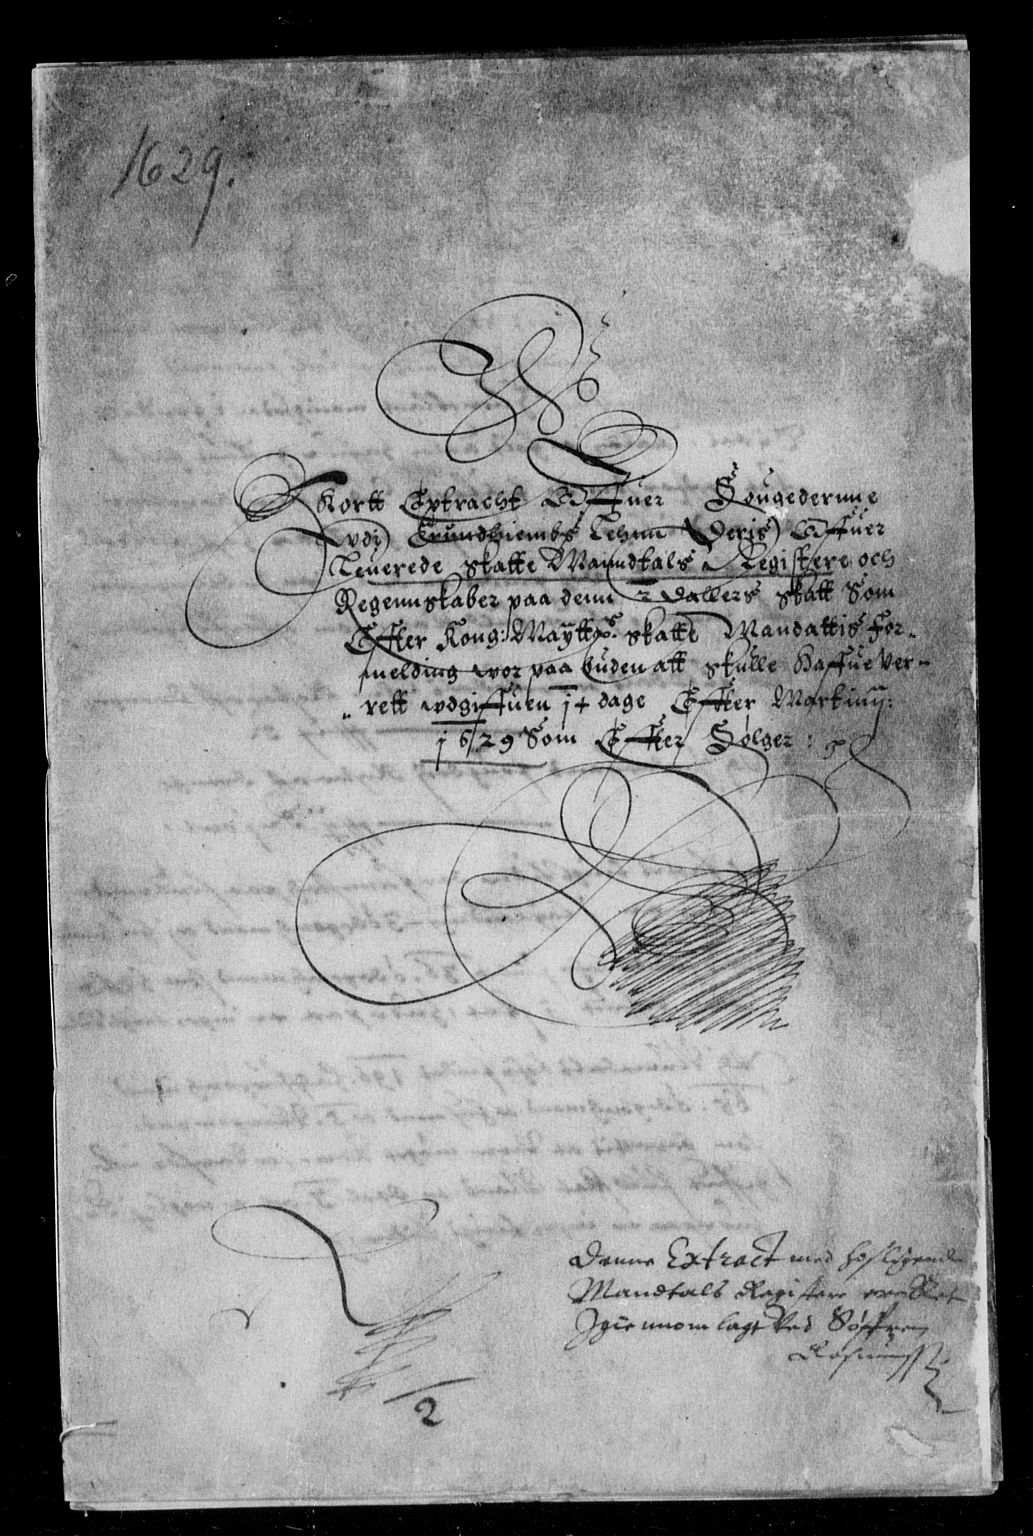 1629.
Kortt Extracht Offuer Fougedernne
Udj Trundhiembs Lehnn Deris Offuer
Leuerede skatte Manndtals Registere och
Regennskaber paa denn 2 dallers skatt Som
Effter Kong: Maytts. skatte Mandattis For-
melding wor paa buden att skulle Haffue Ver-
rett udgiffuen 14 dage Effter Martinij:
1629 Som Effter Følger:
Denne Extract med hosligende
Mandtals Registere ere
Igiennom lagt Ved Søffren
2